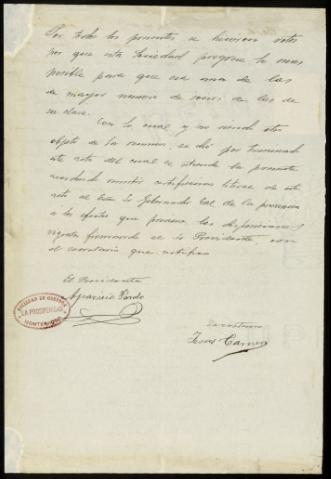 Por todos los presentes se hicieron votos
por que esta Sociedad progrese lo mas
posible para que sea una de las
de mayor numero de socios de las de
su clase.
Con lo cual y no siendo otro
objeto de la reunion, se dió por terminado
este acto del cual se extiende la presente
acordando remitir certificacion literal de este
acta al Exmo Sr Gobernador Civil de la provincia
a los efectos que previene las disposiciones
vigentes firmando el Sr Presidente con
el secretario que certifica
El Presidente
Aparicio Pardo
SOCIEDAD DE
LA PROSPERIDAD
Secretario